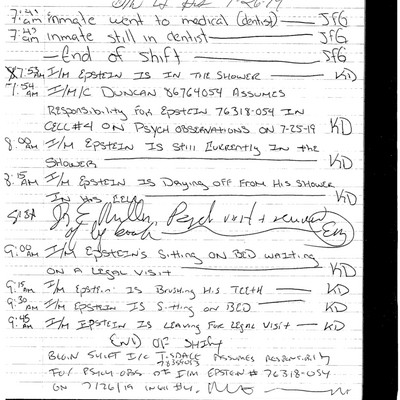 7:41 am inmate went to medical (dentist) JFG
7:43 am inmate still in dentist JFG
End of Shift JFG
7:53 AM I/M EPSTEIN IS IN THE SHOWER KD
7:54 AM I/M/C DUNCAN 86764054 ASSUMES
RESPONSIBILITY FOR EPSTEIN 76318-054 IN
CELL #4 ON PSYCH OBSERVATIONS ON 7-25-19 KD
8:00 AM I/M EPSTEIN IS Still CURRENTLY IN the
SHOWER KD
8:15 AM I/M EPSTEIN IS DRYING OFF FROM HIS SHOWER
IN HIS CELL KD
Psych visit + review
of log book
9:00 AM I/M EPSTEIN'S Sitting ON BED WAITING
ON A LEGAL VISIT KD
9:15 AM I/M Epstein IS BRUSHING HIS TEETH KD
9:30 AM I/M EPSTEIN IS Sitting ON BED KD
9:45 AM I/M EPSTEIN IS LEAVING FOR LEGAL VISIT KD
END OF SHIFT
BEGIN SHIFT I/C ASSUMES RESPONSIBILITY
FOR PSYCH OBS OF I/M EPSTEIN # 76318-054
ON 7/26/19 IN #4.